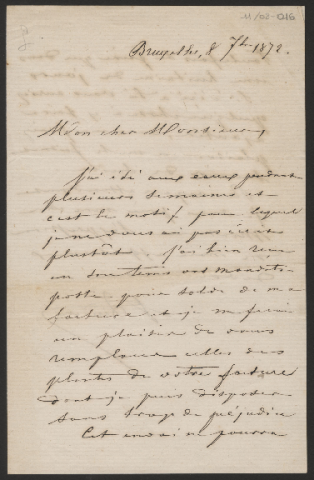 11/02-016
Bruxelles, 8 7bre 1872.
Mon cher Monsieur
J'ai été aux eaux pendant
plusieurs semaines et
c'est le motif pour lequel
je ne vous ai pas écrit
plustôt. J'ai bien reçu
en son temps votre mandat
poste pour solde de ma
facture et je me ferai
un plaisir de vous
remplacer celles des
plantes de votre facture
dont je puis disposer
sans trop de préjudice
Cet envoi ne pourra